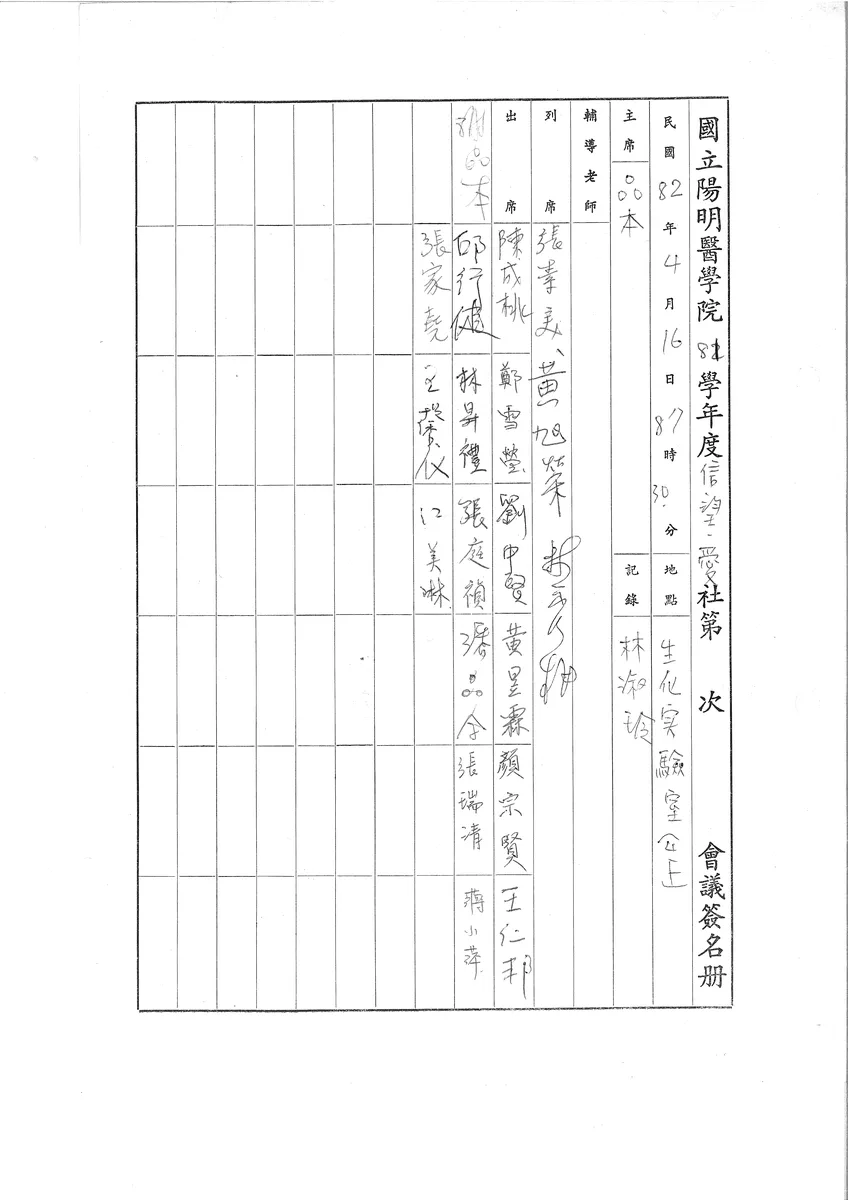 國立陽明醫學院 81 學年度信望愛社第 次 會議簽名册
民國 82 年 4 月 16 日 時 30 分 地點 生化实驗室
主席 品本 記錄 林淑玲
輔導老師
列席 張素美、黃旭榮
出席 陳成桃 鄭雪瑩 劉中賢 黃昱霖 顏宗賢 王仁邦
品本 邱行健 林昇禮 張庭禎 潘品全 張瑞清 蔣小萍
張家堯 王馨仪 江美琳